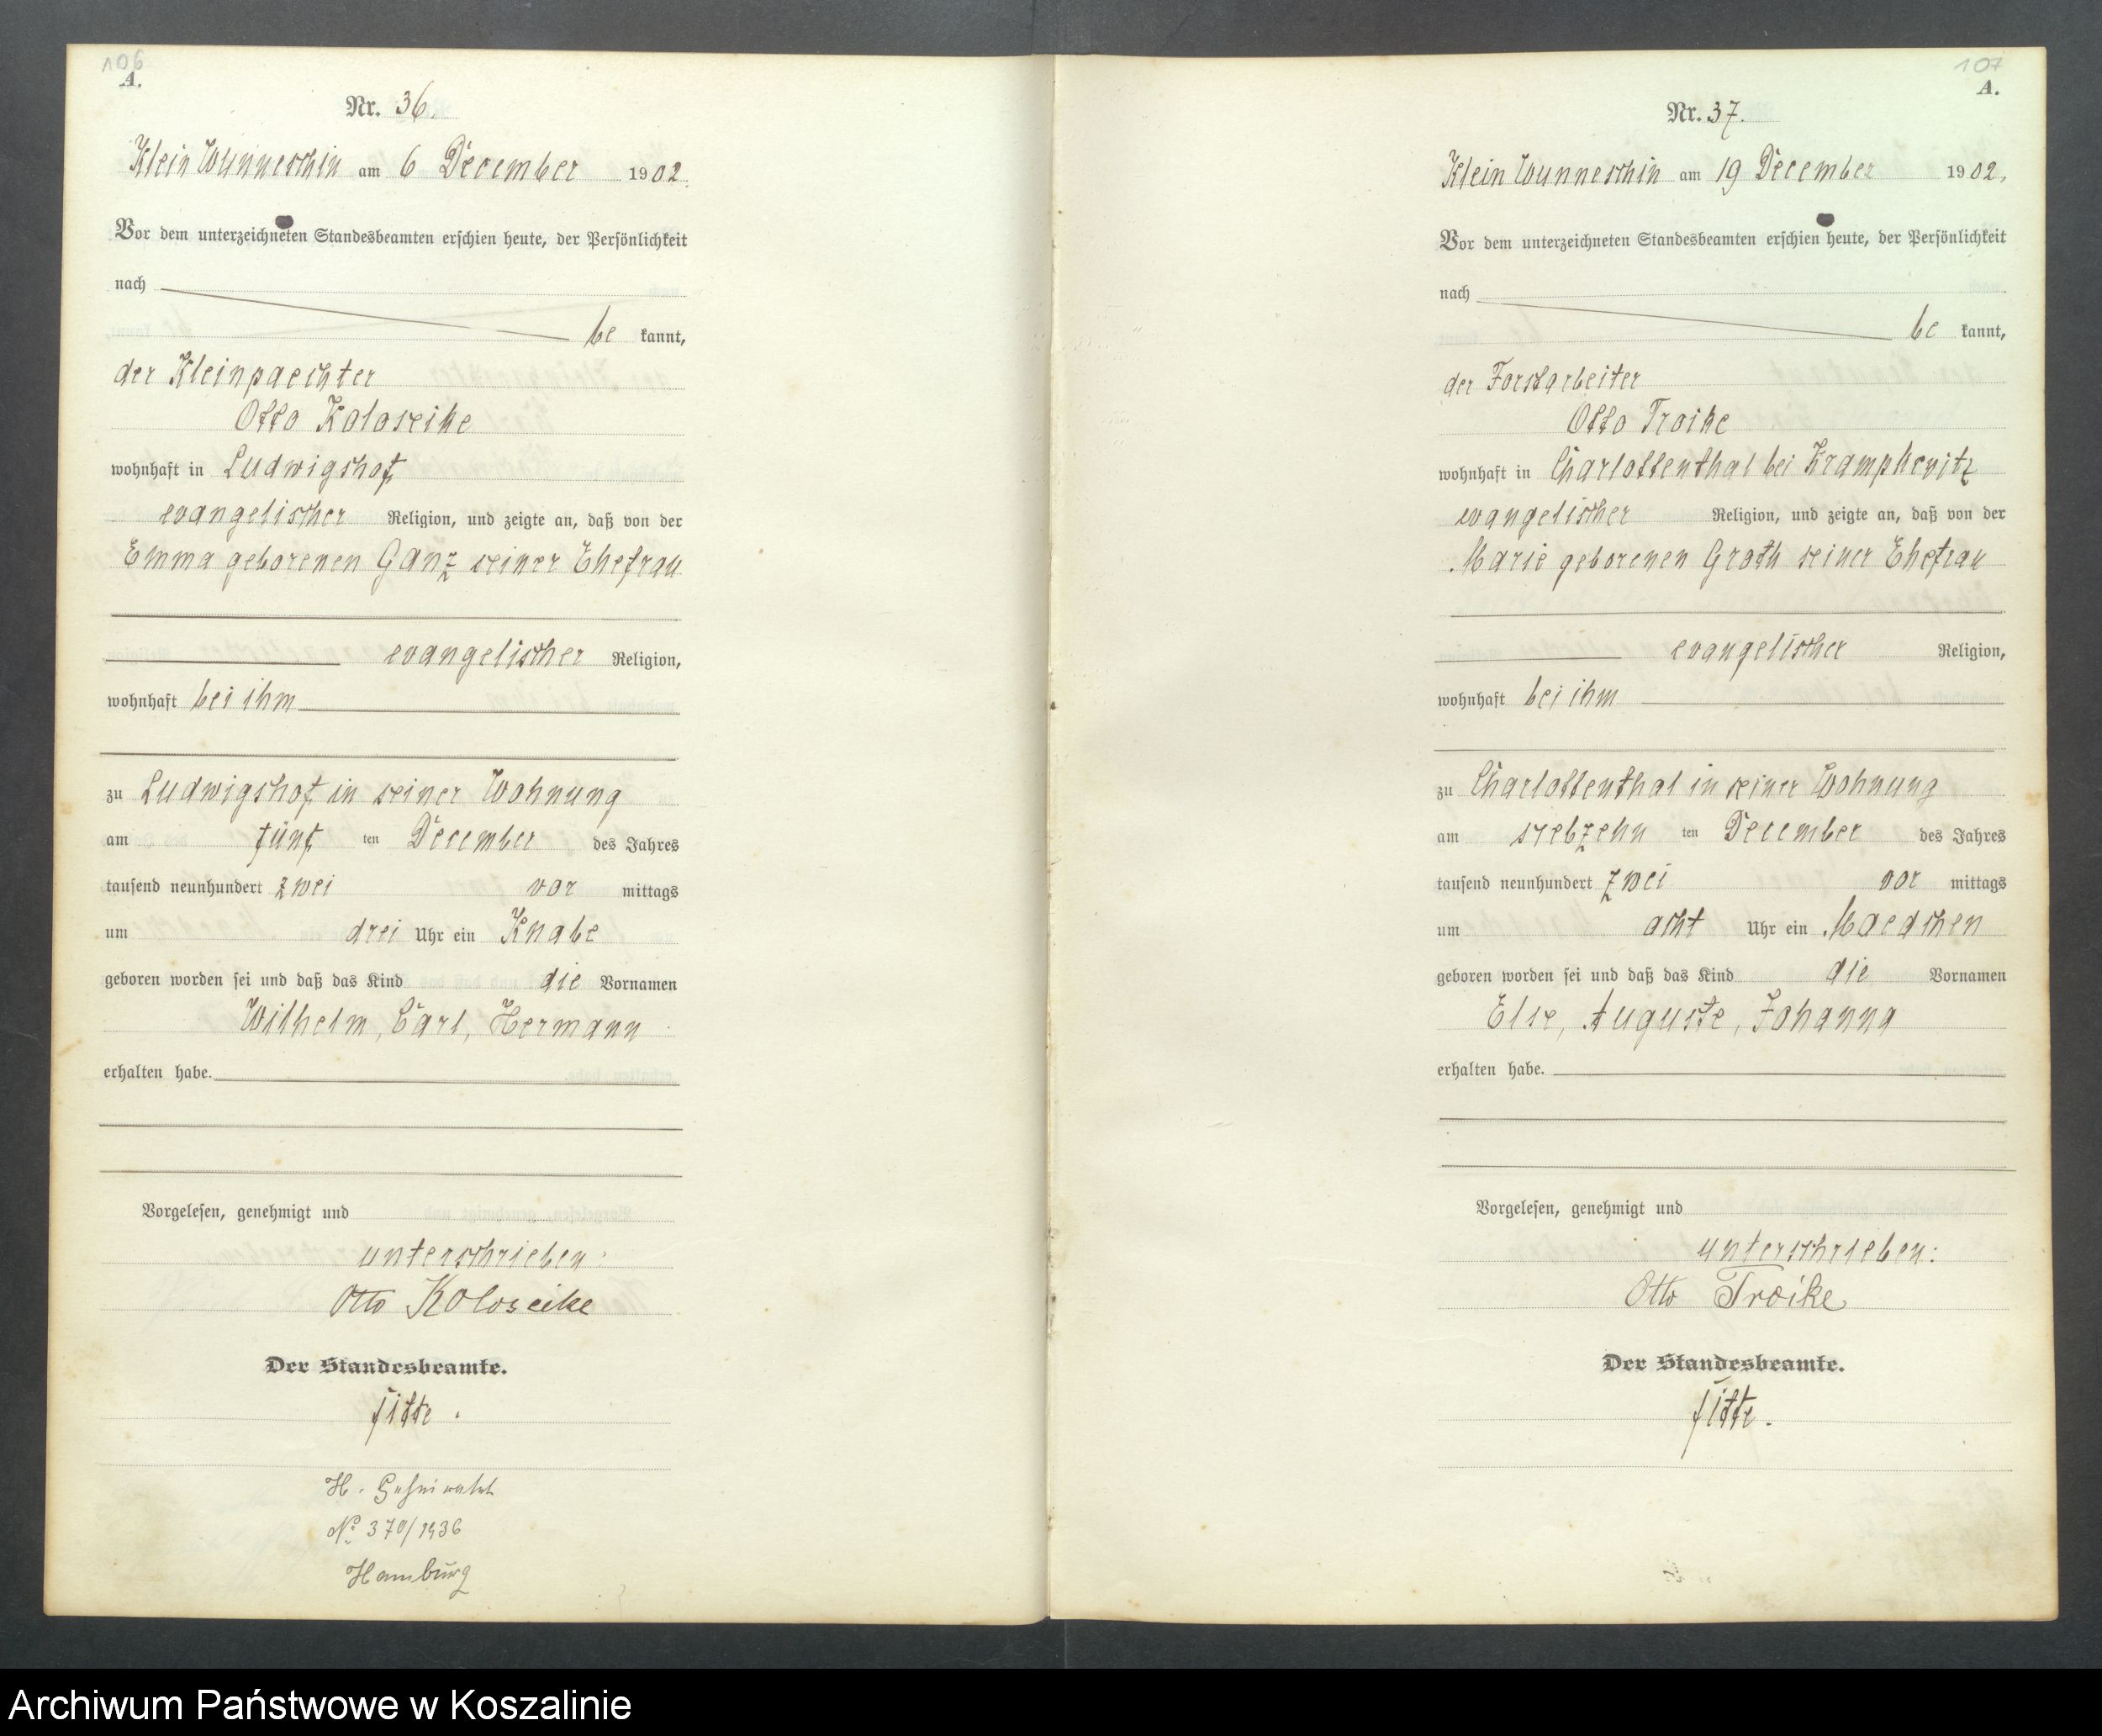 106
A.
Nr. 36.
Klein Wunneschin am 6 December 1902.
Vor dem unterzeichneten Standesbeamten erschien heute, der Persönlichkeit
nach
be kannt,
der Kleinpaechter
Otto Koloseike
wohnhaft in Ludwigshof,
evangelischer Religion, und zeigte an, daß von der
Emma geborenen Ganz seiner Ehefrau
evangelischer Religion,
wohnhaft bei ihm
zu Ludwigshof, in seiner Wohnung
am fünf ten December des Jahres
tausend neunhundert zwei vor mittags
um drei Uhr ein Knabe
geboren worden sei und daß das Kind die Vornamen
Wilhelm, Carl, Hermann
erhalten habe.
Vorgelesen, genehmigt und
unterschrieben:
Otto Koloseike
Der Standesbeamte.
Fitte.
H.
No. 370/1936
Hamburg
107
A.
Nr. 37.
Klein Wunneschin am 19 December 1902.
Vor dem unterzeichneten Standesbeamten erschien heute, der Persönlichkeit
nach
be kannt,
der Forstarbeiter
Otto Troike
wohnhaft in Charlottenthal bei Krampkewitz
evangelischer Religion, und zeigte an, daß von der
Marie geborenen Groth seiner Ehefrau
evangelischer Religion,
wohnhaft bei ihm
zu Charlottenthal in seiner Wohnung
am siebzehn ten December des Jahres
tausend neunhundert zwei vor mittags
um acht Uhr ein Maedchen
geboren worden sei und daß das Kind die Vornamen
Else, Auguste, Johanna
erhalten habe.
Vorgelesen, genehmigt und
unterschrieben:
Otto Troike
Der Standesbeamte.
Fitte.
Archiwum Państwowe w Koszalinie